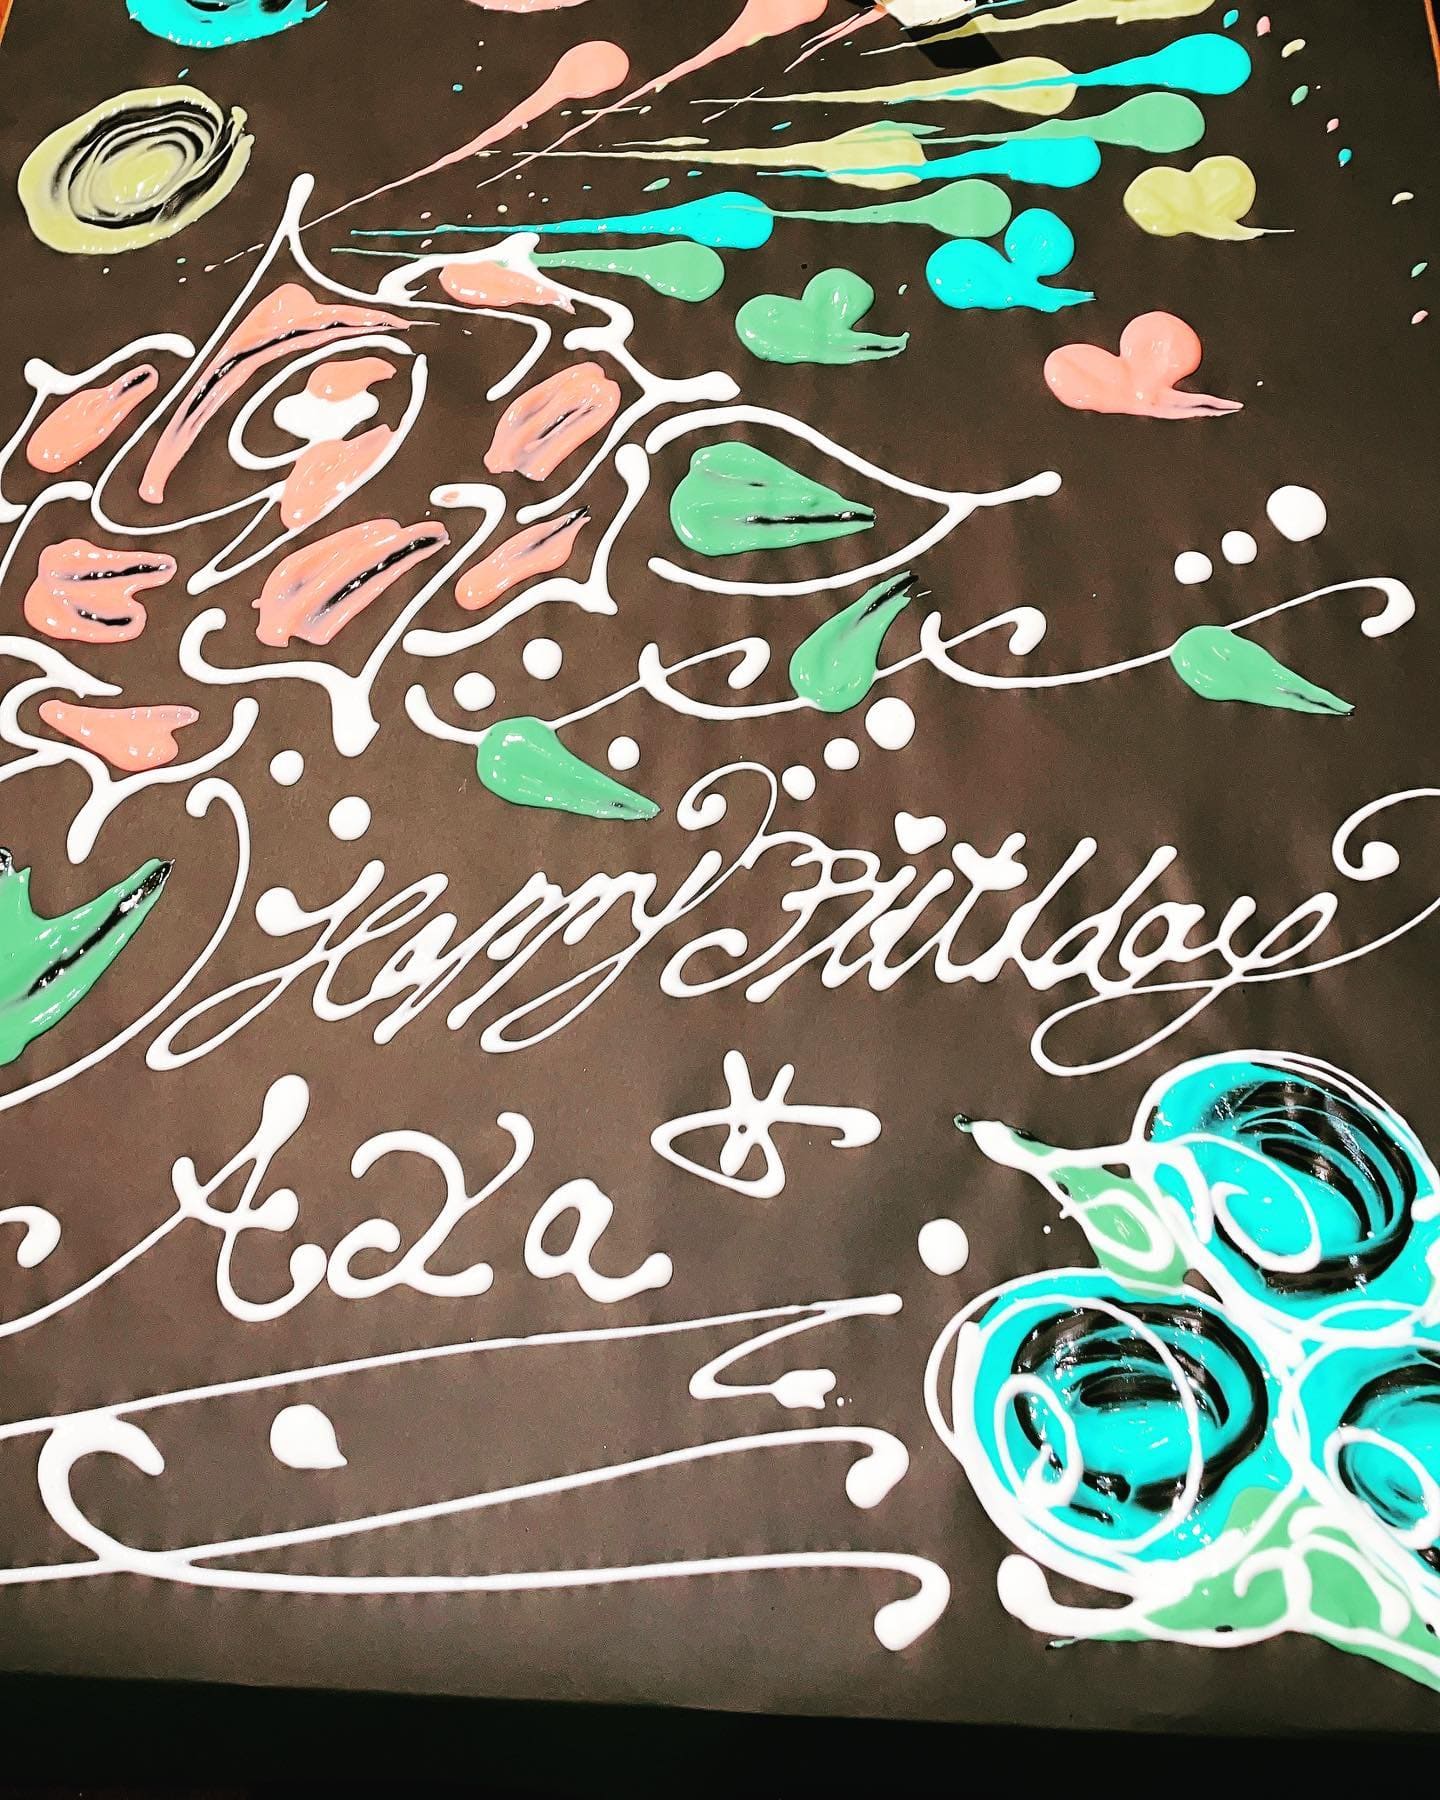 Happy Birthday
Aya